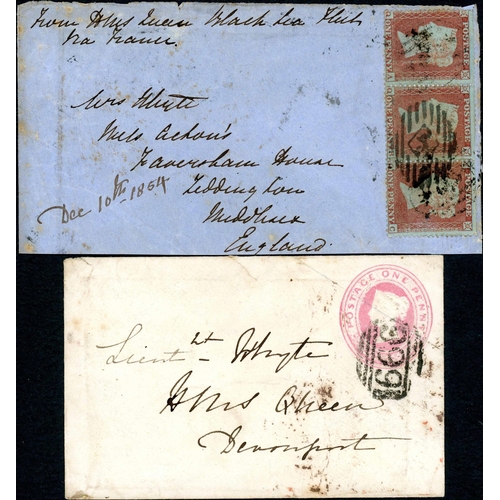 From HMS Queen Black Sea Fleet
Via France.
Mrs Whyte
Miss Acton's
Faversham House
Teddington
Middlesex
England
Dec 10th 1854
POSTAGE
POSTAGE
POSTAGE
POSTAGE ONE PENNY
Lieut- Whyte
HMS Queen
Devonport